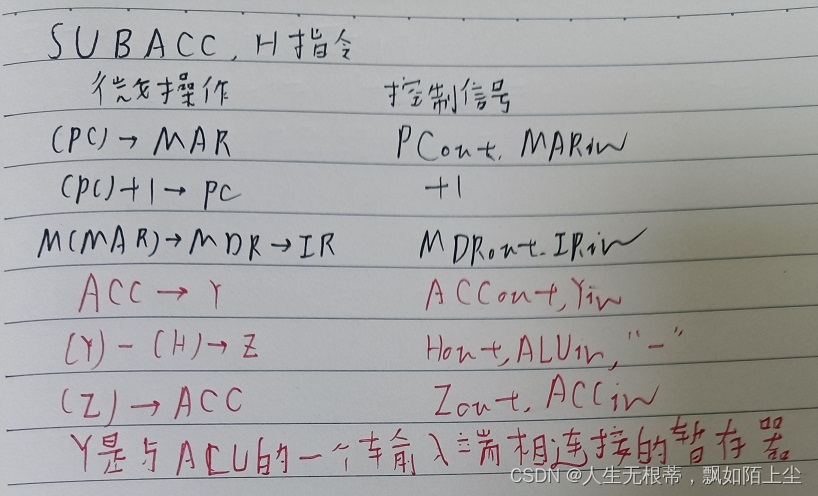 SUBACC, H指令
微操作 控制信号
(PC)→MAR PCout, MARin
(PC)+1→PC +1
M(MAR)→MDR→IR MDRout. IRin
ACC→Y ACCout, Yin
(Y)-(H)→Z Hout, ALUin, "-"
(Z)→ACC Zout, ACCin
Y是与ALU的一个输入端相连接的暂存器
CSDN @人生无根蒂，飘如陌上尘